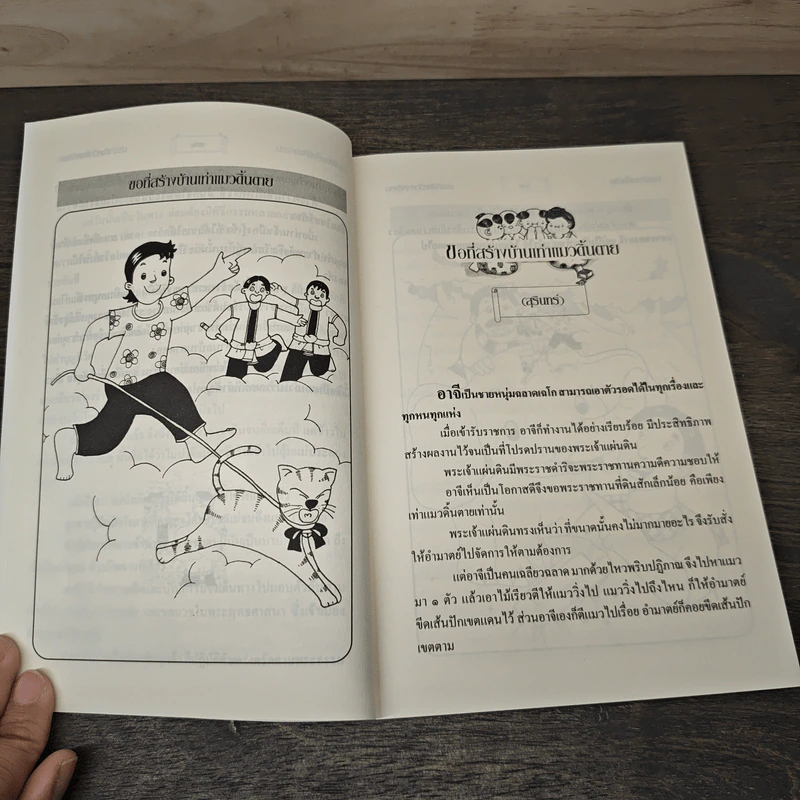 ขอที่สร้างบ้านเท่าแมวดิ้นตาย
ขอที่สร้างบ้านเท่าแมวดิ้นตาย
(สุรินทร์)
อาจีเป็นชายหนุ่มฉลาดเฉโก สามารถเอาตัวรอดได้ในทุกเรื่องและ
ทุกหนทุกแห่ง
เมื่อเข้ารับราชการ อาจีก็ทำงานได้อย่างเรียบร้อย มีประสิทธิภาพ
สร้างผลงานไว้จนเป็นที่โปรดปรานของพระเจ้าแผ่นดิน
พระเจ้าแผ่นดินมีพระราชดำริจะพระราชทานความดีความชอบให้
อาจีเห็นเป็นโอกาสดีจึงขอพระราชทานที่ดินสักเล็กน้อย คือเพียง
เท่าแมวดิ้นตายเท่านั้น
พระเจ้าแผ่นดินทรงเห็นว่า ที่ขนาดนั้นคงไม่มากมายอะไร จึงรับสั่ง
ให้อำมาตย์ไปจัดการให้ตามต้องการ
แต่อาจีเป็นคนเฉลียวฉลาด มากด้วยไหวพริบปฏิภาณ จึงไปหาแมว
มา ๑ ตัว แล้วเอาไม้เรียวตีให้แมววิ่งไป แมววิ่งไปถึงไหน ก็ให้อำมาตย์
ขีดเส้นปักเขตแดนไว้ ส่วนอาจีเองก็ตีแมวไปเรื่อย อำมาตย์ก็คอยขีดเส้นปัก
เขตตาม